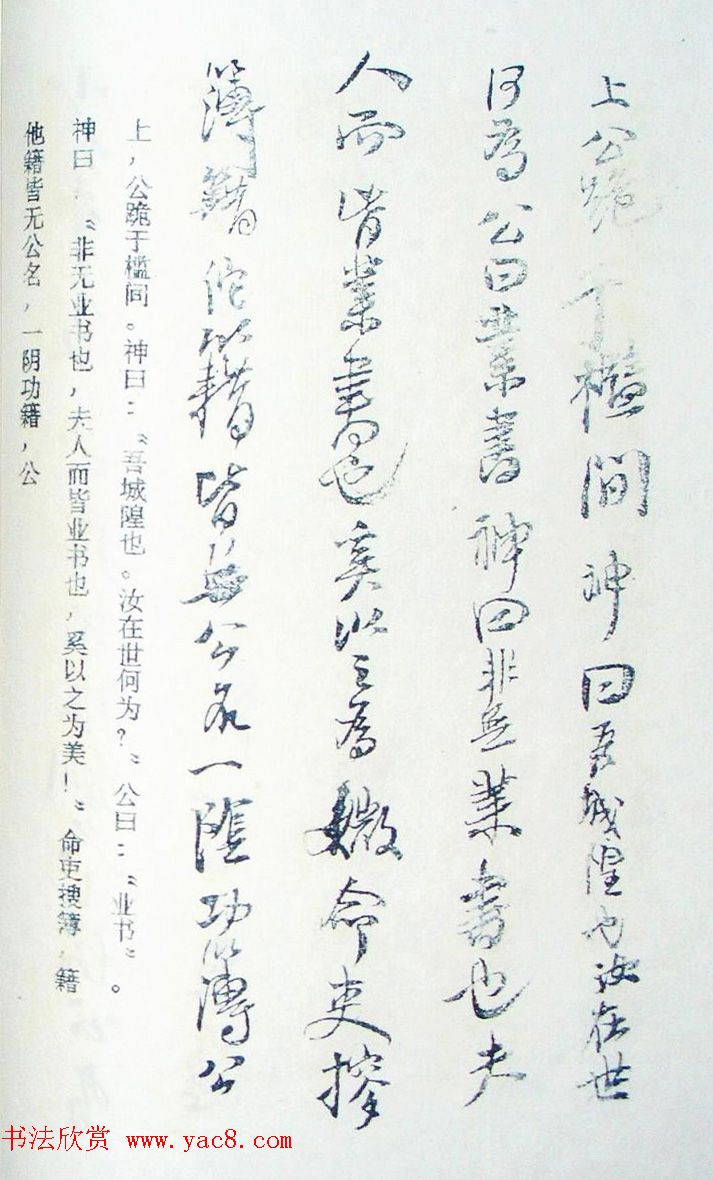 上公跪于槛間神曰吾城隍也汝在世
何为公曰業書神曰非無業書也夫
人而皆業書也奚以之為媺命吏搜
簿籍佗籍皆無公名一陰功簿公
上，公跪于槛间。神曰：“吾城隍也。汝在世何为？”公曰：“业书”。
神曰：“非无业书也，夫人而皆业书也，奚以之为美！”命吏搜簿，籍
他籍皆无公名，一阴功籍，公
书法欣赏 www.yac8.com